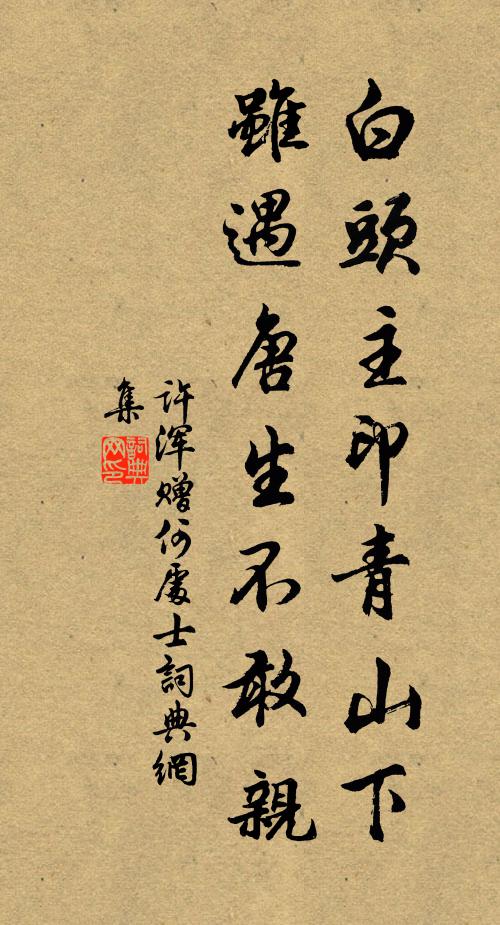 白頭主印青山下
雖遇唐生不敢親
許渾赠何處士詞典網
集
詞典
网印